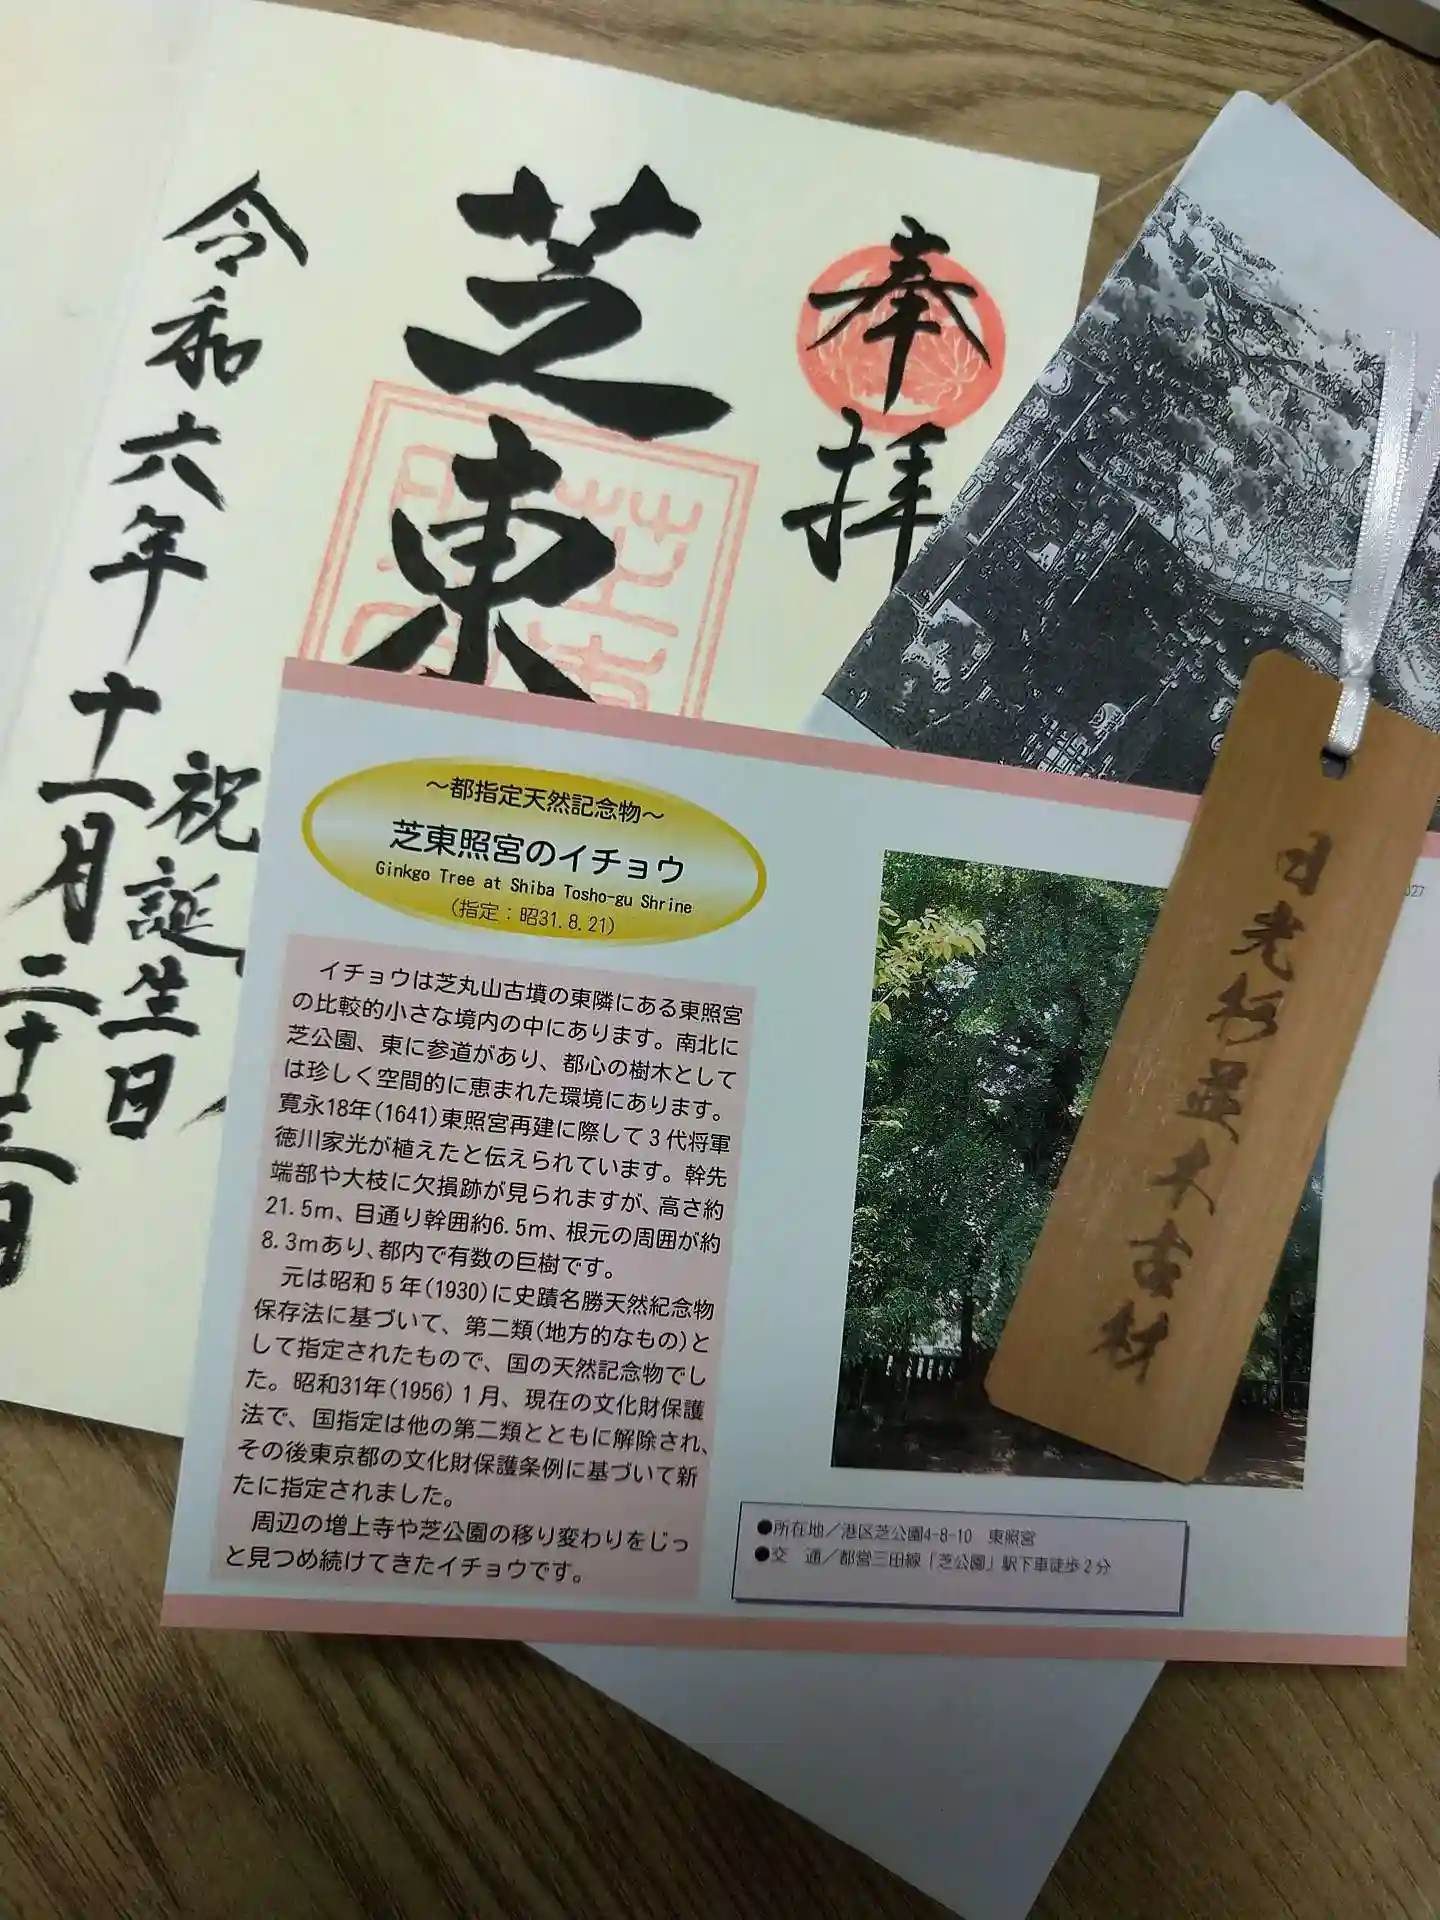 奉拝
芝東
令和六年十一月二十三日
祝誕生日
～都指定天然記念物～
芝東照宮のイチョウ
Ginkgo Tree at Shiba Tosho-gu Shrine
(指定：昭31.8.21)
イチョウは芝丸山古墳の東隣にある東照宮
の比較的小さな境内の中にあります。南北に
芝公園、東に参道があり、都心の樹木として
は珍しく空間的に恵まれた環境にあります。
寛永18年(1641)東照宮再建に際して３代将軍
徳川家光が植えたと伝えられています。幹先
端部や大枝に欠損跡が見られますが、高さ約
21.5m、目通り幹囲約6.5m、根元の周囲が約
8.3mあり、都内で有数の巨樹です。
元は昭和５年(1930)に史蹟名勝天然紀念物
保存法に基づいて、第二類(地方的なもの)と
して指定されたもので、国の天然記念物でし
た。昭和31年(1956)１月、現在の文化財保護
法で、国指定は他の第二類とともに解除され、
その後東京都の文化財保護条例に基づいて新
たに指定されました。
周辺の増上寺や芝公園の移り変わりをじっ
と見つめ続けてきたイチョウです。
●所在地／港区芝公園4-8-10　東照宮
●交　通／都営三田線「芝公園」駅下車徒歩２分
日光杉並木古材
027